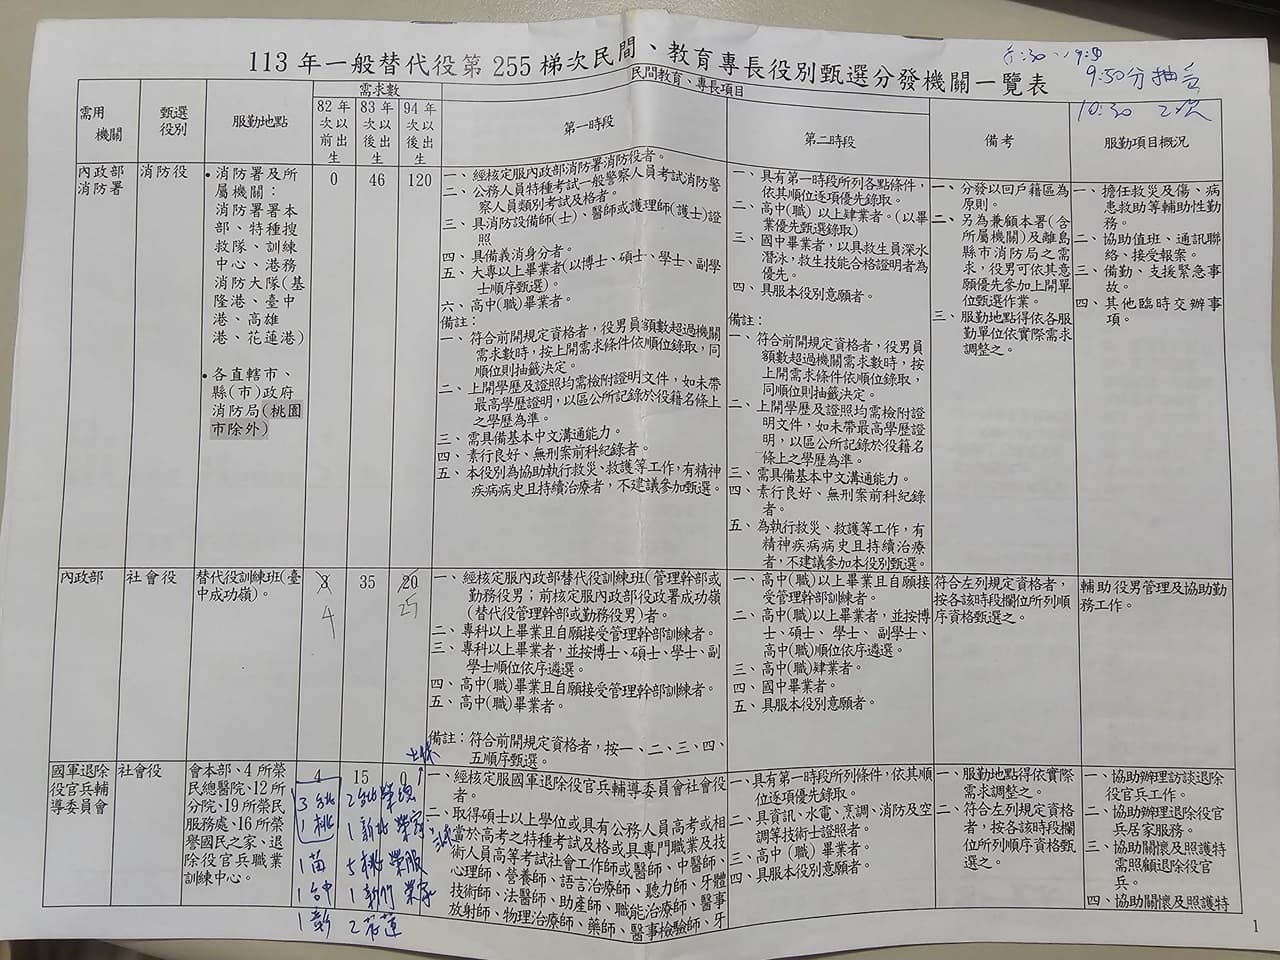 113 年一般替代役第 255 梯次民間、教育專長役別甄選分發機關一覽表
9:50分抽
10:30
需用
機關
甄選
役別
服勤地點
需求數
82 年
次以
前出
生
83 年
次以
後出
生
94 年
次以
後出
生
民間教育、專長項目
第一時段
第二時段
備考
服勤項目概況
內政部
消防署
消防役
• 消防署及所
屬機關：
消防署署本
部、特種搜
救隊、訓練
中心、港務
消防大隊(基
隆港、臺中
港、高雄
港、花蓮港)
• 各直轄市、
縣(市)政府
消防局(桃園
市除外)
0
46
120
一、經核定服內政部消防署消防役者。
二、公務人員特種考試一般警察人員考試消防警
察人員類別考試及格者。
三、具消防設備師(士)、醫師或護理師(護士)證
照
四、具備義消身分者。
五、大專以上畢業者(以博士、碩士、學士、副學
士順序甄選)。
六、高中(職)畢業者。
備註：
一、符合前開規定資格者，役男員額數超過機關
需求數時，按上開需求條件依順位錄取，同
順位則抽籤決定。
二、上開學歷及證照均需檢附證明文件，如未帶
最高學歷證明，以區公所記錄於役籍名條上
之學歷為準。
三、需具備基本中文溝通能力。
四、素行良好、無刑案前科紀錄者。
五、本役別為協助執行救災、救護等工作，有精神
疾病病史且持續治療者，不建議參加甄選。
一、具有第一時段所列各點條件，
依其順位逐項優先錄取。
二、高中(職)以上肄業者。(以畢
業優先甄選錄取)
三、國中畢業者，以具救生員深水
潛泳，救生技能合格證明者為
優先。
四、具服本役別意願者。
備註：
一、符合前開規定資格者，役男員
額數超過機關需求數時，按
上開需求條件依順位錄取，
同順位則抽籤決定。
二、上開學歷及證照均需檢附證
明文件，如未帶最高學歷證
明，以區公所記錄於役籍名
條上之學歷為準。
三、需具備基本中文溝通能力。
四、素行良好、無刑案前科紀錄
者。
五、為執行救災、救護等工作，有
精神疾病病史且持續治療
者，不建議參加本役別甄選。
一、分發以回戶籍區為
原則。
二、另為兼顧本署(含
所屬機關)及離島
縣市消防局之需
求，役男可依其意
願優先參加上開單
位甄選作業。
三、服勤地點得依各服
勤單位依實際需求
調整之。
一、擔任救災及傷、病
患救助等輔助性勤
務。
二、協助值班、通訊聯
絡、接受報案。
三、備勤、支援緊急事
故。
四、其他臨時交辦事
項。
內政部
社會役
替代役訓練班(臺
中成功嶺)。
3
4
35
20
25
一、經核定服內政部替代役訓練班(管理幹部或
勤務役男；前核定服內政部役政署成功嶺
(替代役管理幹部或勤務役男)者。
二、專科以上畢業且自願接受管理幹部訓練者。
三、專科以上畢業者，並按博士、碩士、學士、副
學士順位依序遴選。
四、高中(職)畢業且自願接受管理幹部訓練者。
五、高中(職)畢業者。
備註：符合前開規定資格者，按一、二、三、四、
五順序甄選。
一、高中(職)以上畢業且自願接
受管理幹部訓練者。
二、高中(職)以上畢業者，並按博
士、碩士、學士、副學士、
高中(職)順位依序遴選。
三、高中(職)肄業者。
四、國中畢業者。
五、具服本役別意願者。
符合左列規定資格者，
按各該時段欄位所列順
序資格甄選之。
輔助役男管理及協助勤
務工作。
國軍退除
役官兵輔
導委員會
社會役
會本部、4 所榮
民總醫院、12所
分院、19所榮民
服務處、16所榮
譽國民之家、退
除役官兵職業
訓練中心。
4
3 台北
1 桃
1 苗
1 台中
1 彰
15
2 台北 榮總
1 新北 榮家
5 桃 榮服
1 新竹 榮家
2 花蓮
0
一、經核定服國軍退除役官兵輔導委員會社會役
者。
二、取得碩士以上學位或具有公務人員高考或相
當於高考之特種考試及格或具專門職業及技
術人員高等考試社會工作師或醫師、中醫師、
心理師、營養師、語言治療師、聽力師、牙體
技術師、法醫師、助產師、職能治療師、醫事
放射師、物理治療師、藥師、醫事檢驗師、牙
一、具有第一時段所列條件，依其順
位逐項優先錄取。
二、具資訊、水電、烹調、消防及空
調等技術士證照者。
三、高中(職) 畢業者。
四、具服本役別意願者。
一、服勤地點得依實際
需求調整之。
二、符合左列規定資格
者，按各該時段欄
位所列順序資格甄
選之。
一、協助辦理訪談退除
役官兵工作。
二、協助辦理退除役官
兵居家服務。
三、協助關懷及照護特
需照顧退除役官
兵。
四、協助關懷及照護特
1